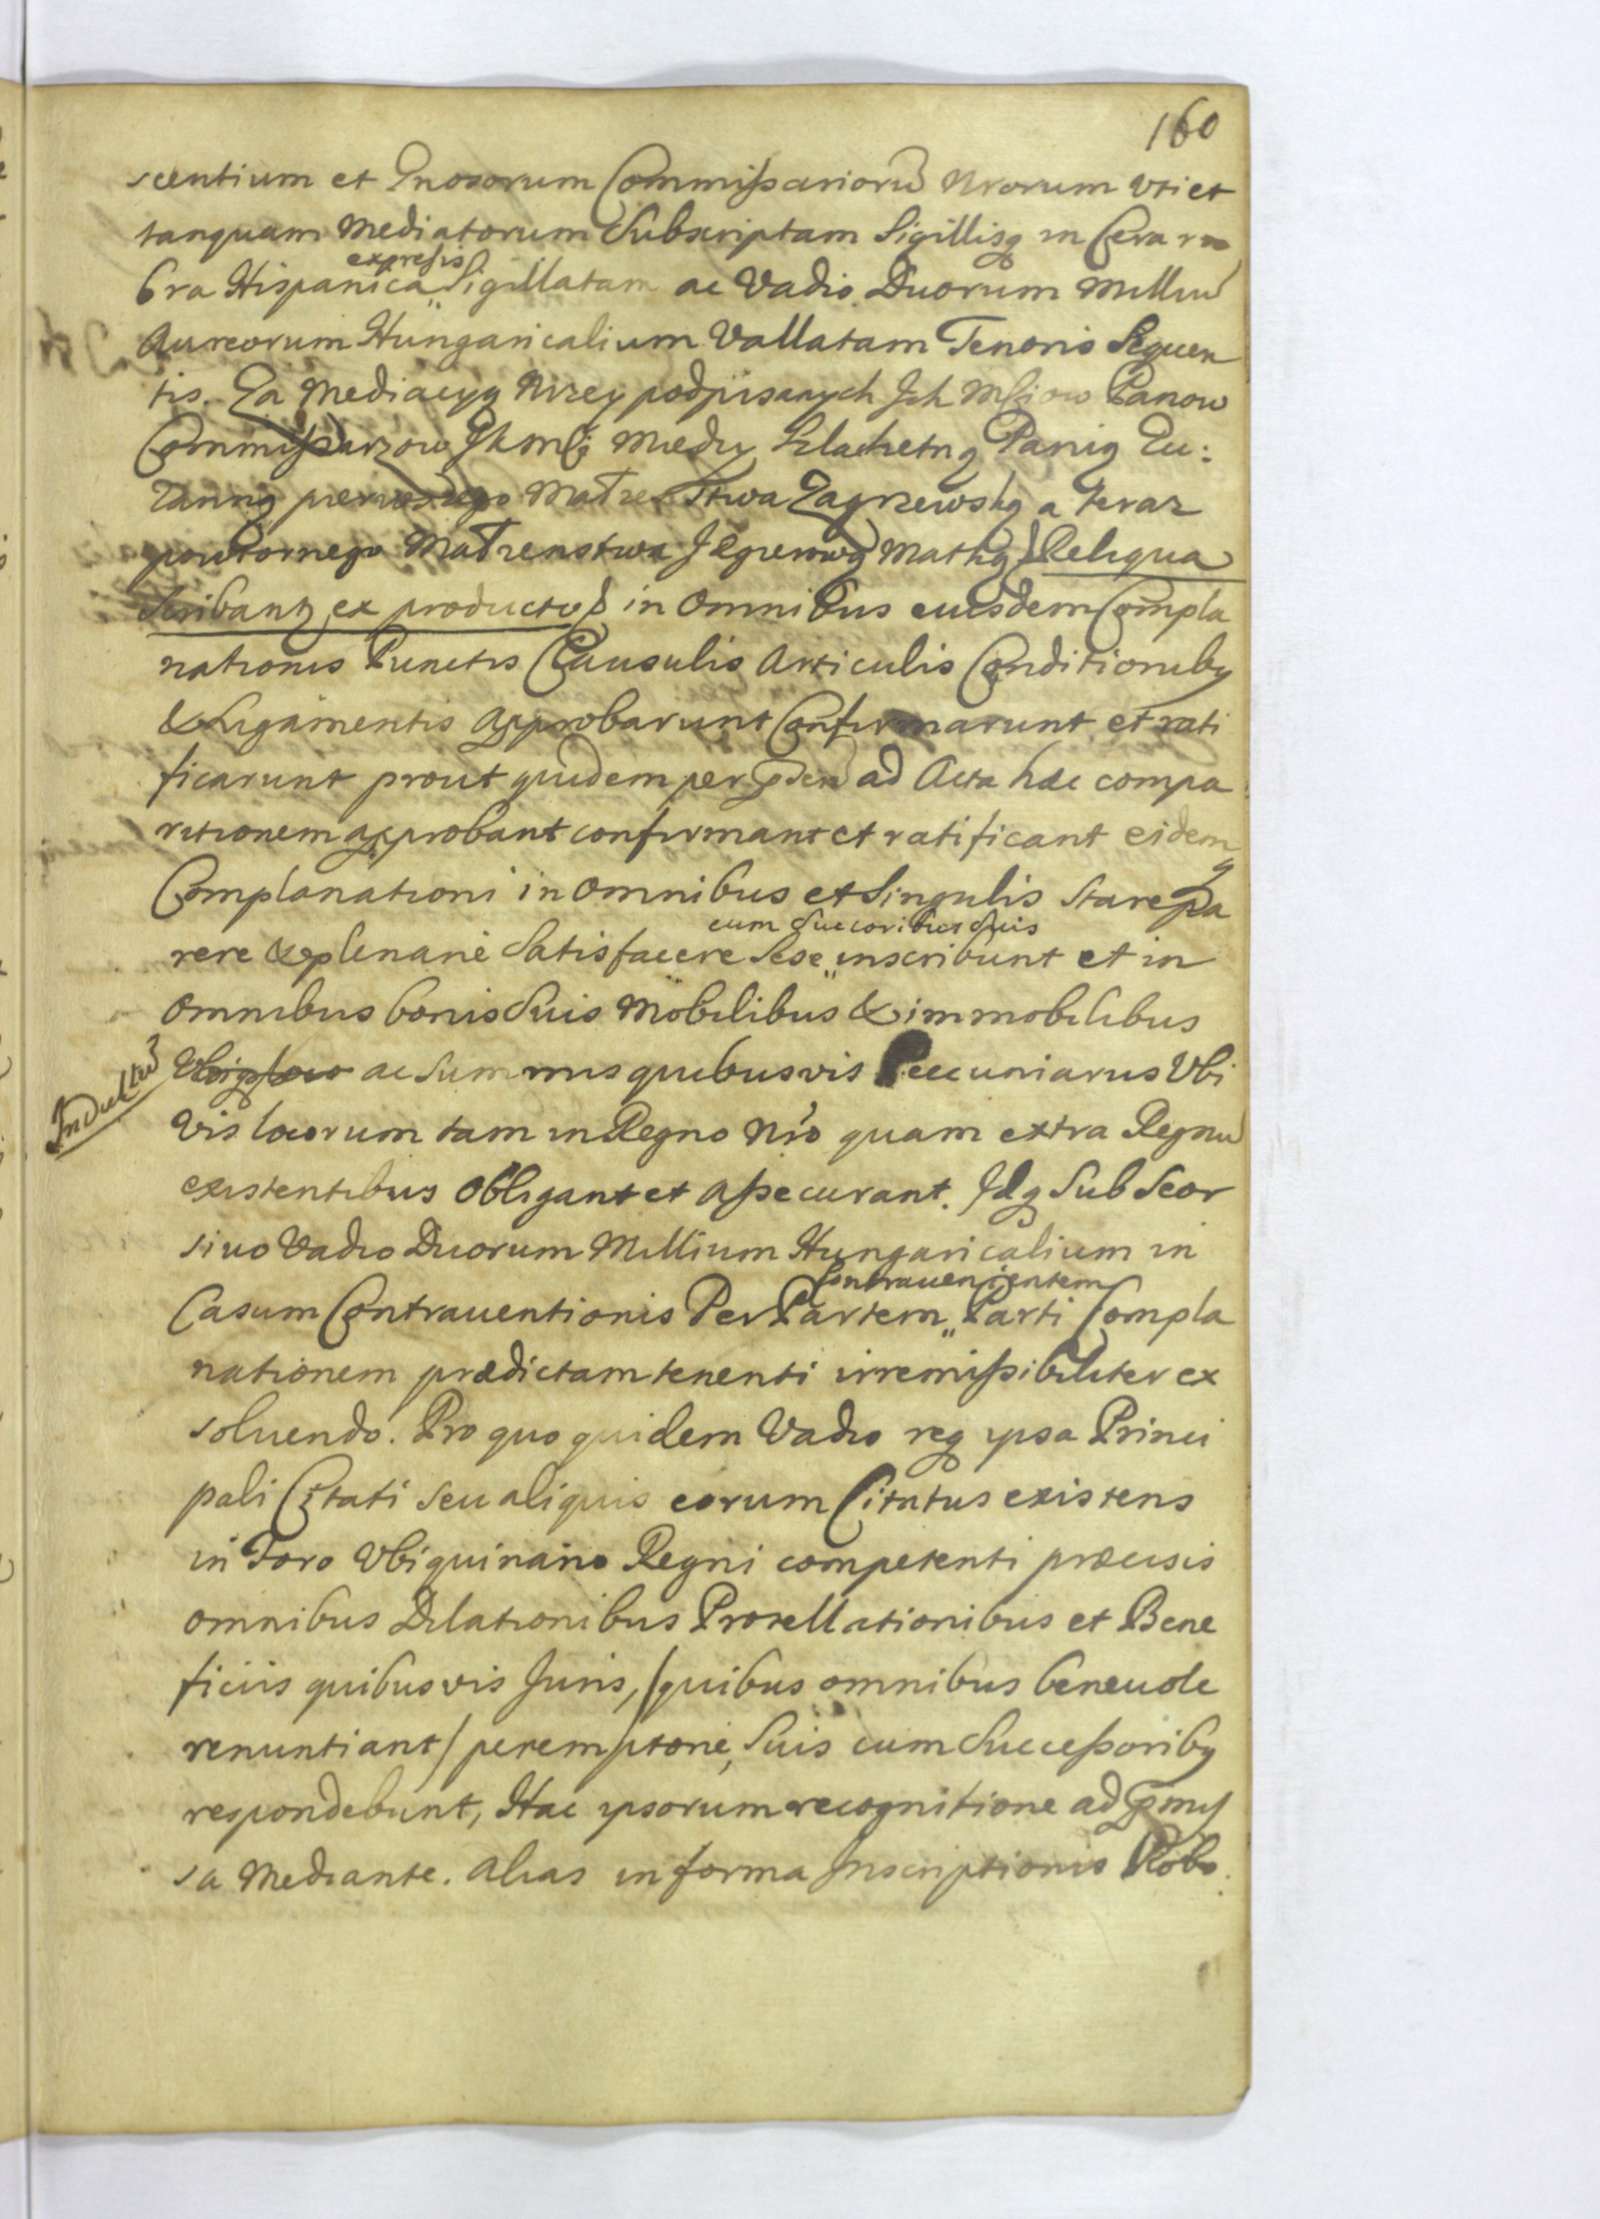 160
scentium et Gnosorum Commissariorũ Nrorum Uti et
tanquam Mediatorum Subscriptam Sigillisq in Cera ru
expressis
bra Hispanica Sigillatam ac Vadio Duorum Milliũ
Aureorum Hungaricalium Vallatam Tenoris Sequen
tis. Za Mediacyą Nizey podpisanych Ich Mściow Panow
Commissarzow JKMści Między Szlachetną Panią Zu:
zanną pierwszego Małzenstwa Zagrzewską a teraz
powtornego Małzenstwa Matką / Reliqua
scribantz ex producto / in Omnibus eiusdem Compla
nationis Punctis Clausulis Articulis Conditionibq
& Ligamentis Approbarunt Confirmarunt et rati
ficarunt prout quidem per ad Acta hæc compa
ritionem approbant confirmant et ratificant eidemq
Complanationi in Omnibus et Singulis Stare Pa
cum Succoribus Suis
rere & plenarie Satisfacere Sese inscribunt et in
Omnibus bonis Suis Mobilibus & immobilibus
ac Summis quibusvis Pecuniarus Ubi
vis locorum tam in Regno Nro quam extra Regnũ
existentibus Obligant et Assecurant. Idq Sub Seor
sivo Vadio Duorum Millium Hungaricalium in
Contrauenientem
Casum Contrauentionis Per Partem Parti Compla
nationem prædictam tenenti irremissibiliter ex
soluendo. Pro quo quidem Vadio req ipsa Princi
pali Citati seu aliquis eorum Citatus existens
in Foro Ubiquinario Regni competenti præcisis
omnibus Dilationibus Prorellationibus et Bene
ficiis quibusvis Juris, /quibus omnibus beneuole
renuntiant/ peremptorie, Suis cum Successoribq
respondebunt, Hac ipsorum recognitione ad pmis
sa Mediante. Alias in forma Inscriptionis Robo